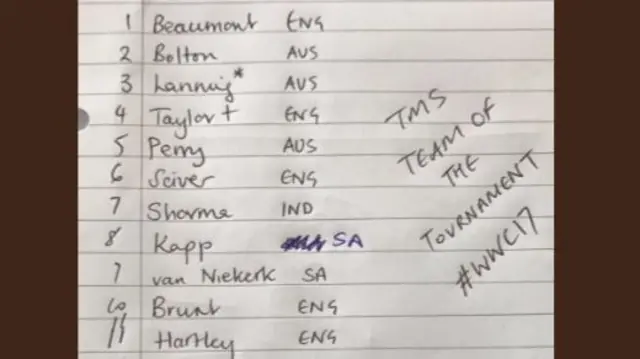 1 Beaumont ENG
2 Bolton AUS
3 Lanning* AUS
4 Taylor+ ENG
5 Perry AUS
6 Sciver ENG
7 Sharma IND
8 Kapp SA
9 van Niekerk SA
10 Brunt ENG
11 Hartley ENG
TMS
TEAM OF
THE
TOURNAMENT
#WWC17